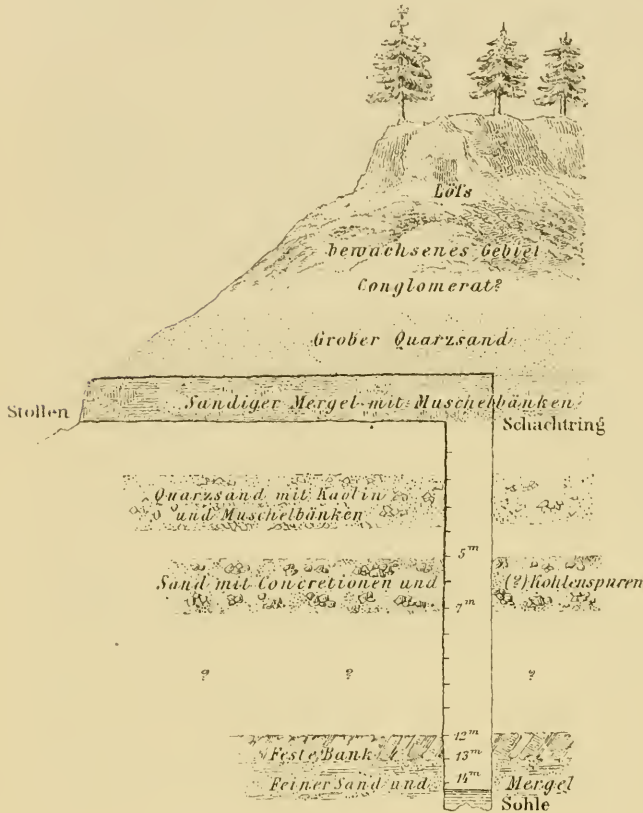 Löſs
bewachsenes Gebiet
Conglomerat?
Grober Quarzsand
Stollen
Sandiger Mergel mit Muschelbänken
Schachtring
Quarzsand mit Kaolin
und Muschelbänken
5m
Sand mit Concretionen und (?) Kohlenspuren
7m
? ? ?
12m
Feste Bank 13m
14m
Feiner Sand und Mergel
Sohle